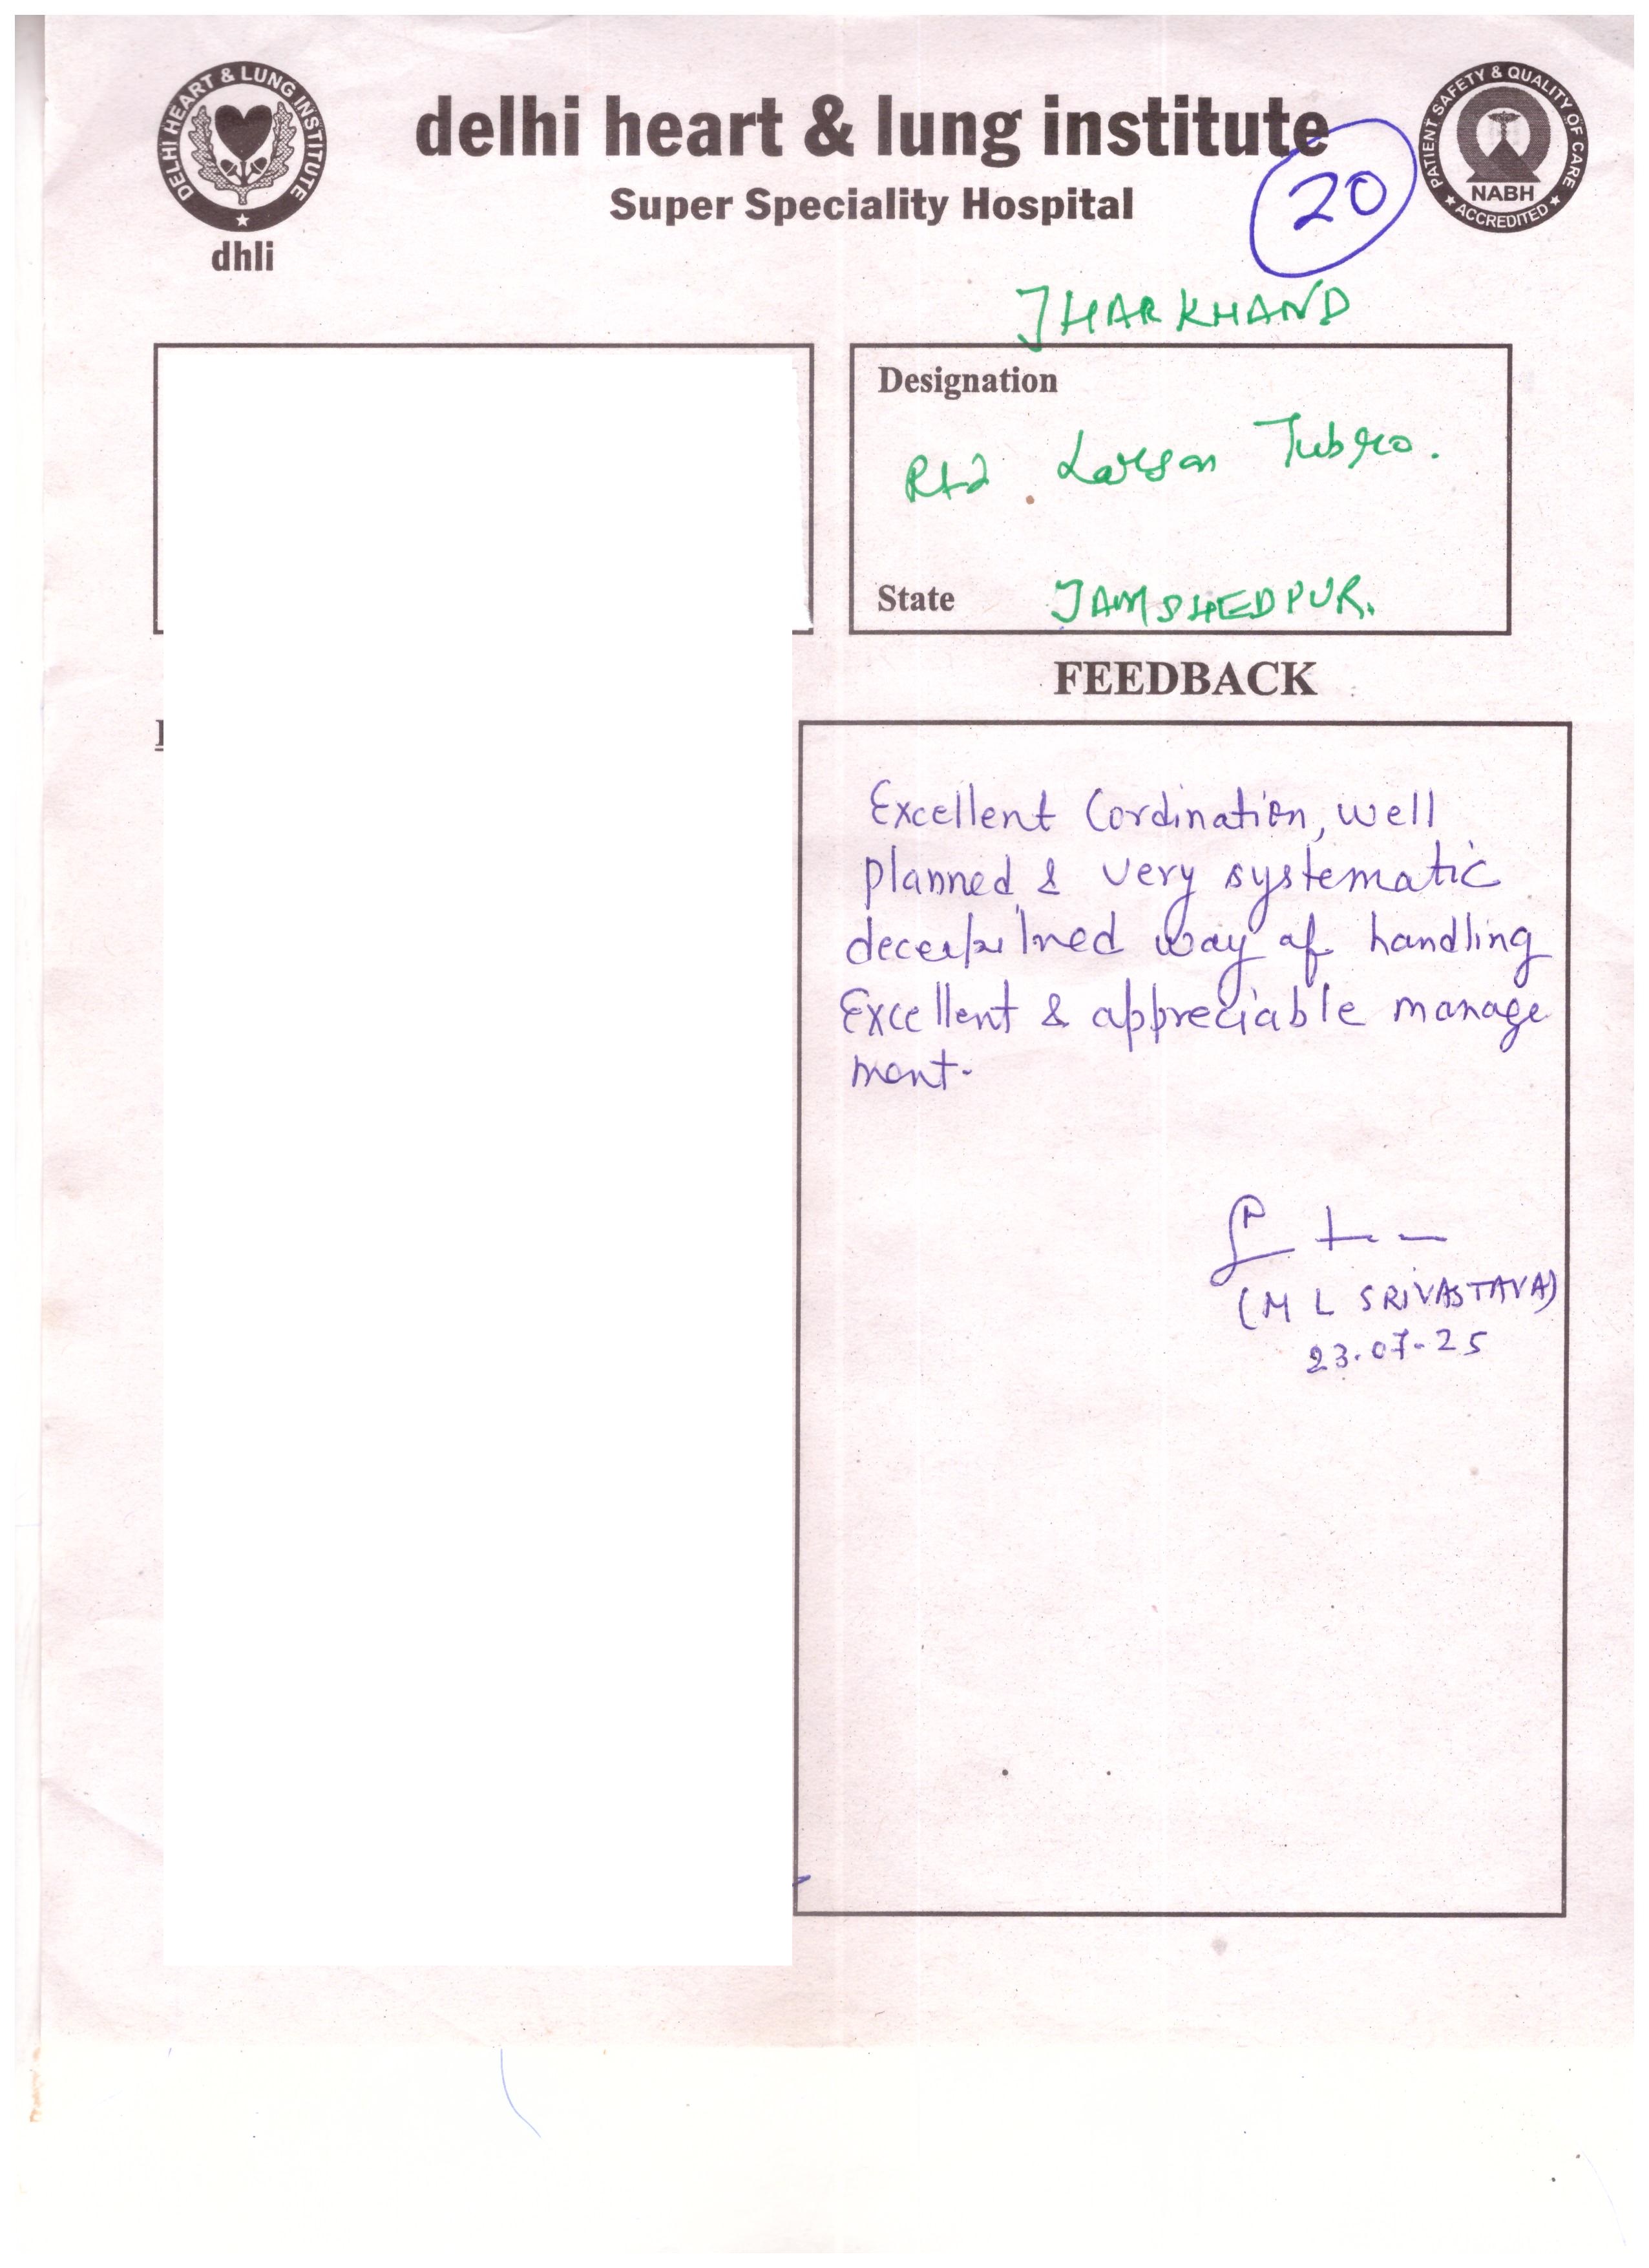 DELHI HEART & LUNG INSTITUTE
dhli
delhi heart & lung institute
Super Speciality Hospital
20
PATIENT SAFETY & QUALITY OF CARE
NABH
ACCREDITED
JHARKHAND
Designation
Rtd. Larsan Tubro.
State JAMSHEDPUR.
FEEDBACK
Excellent Cordination, well
planned & very systematic
way of handling
Excellent & appreciable manage
ment.
(M L SRIVASTAVA)
23.07-25